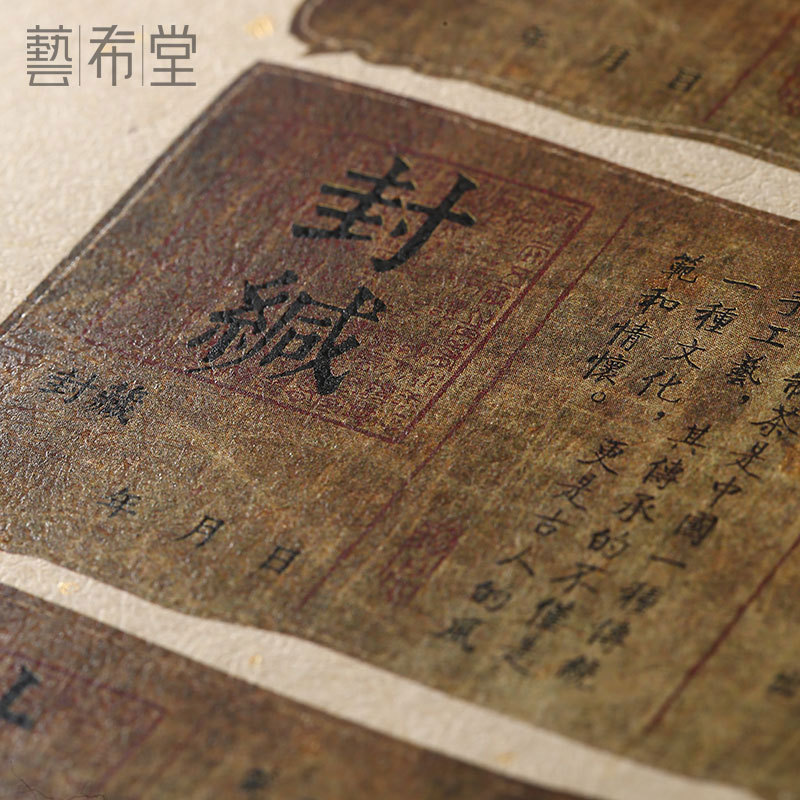 藝布堂
年 月 日
封緘
封藏
年 月 日
茶是中國一種傳統
手工藝，其傳承的不僅是
一種文化，更是古人的風
範和情懷。